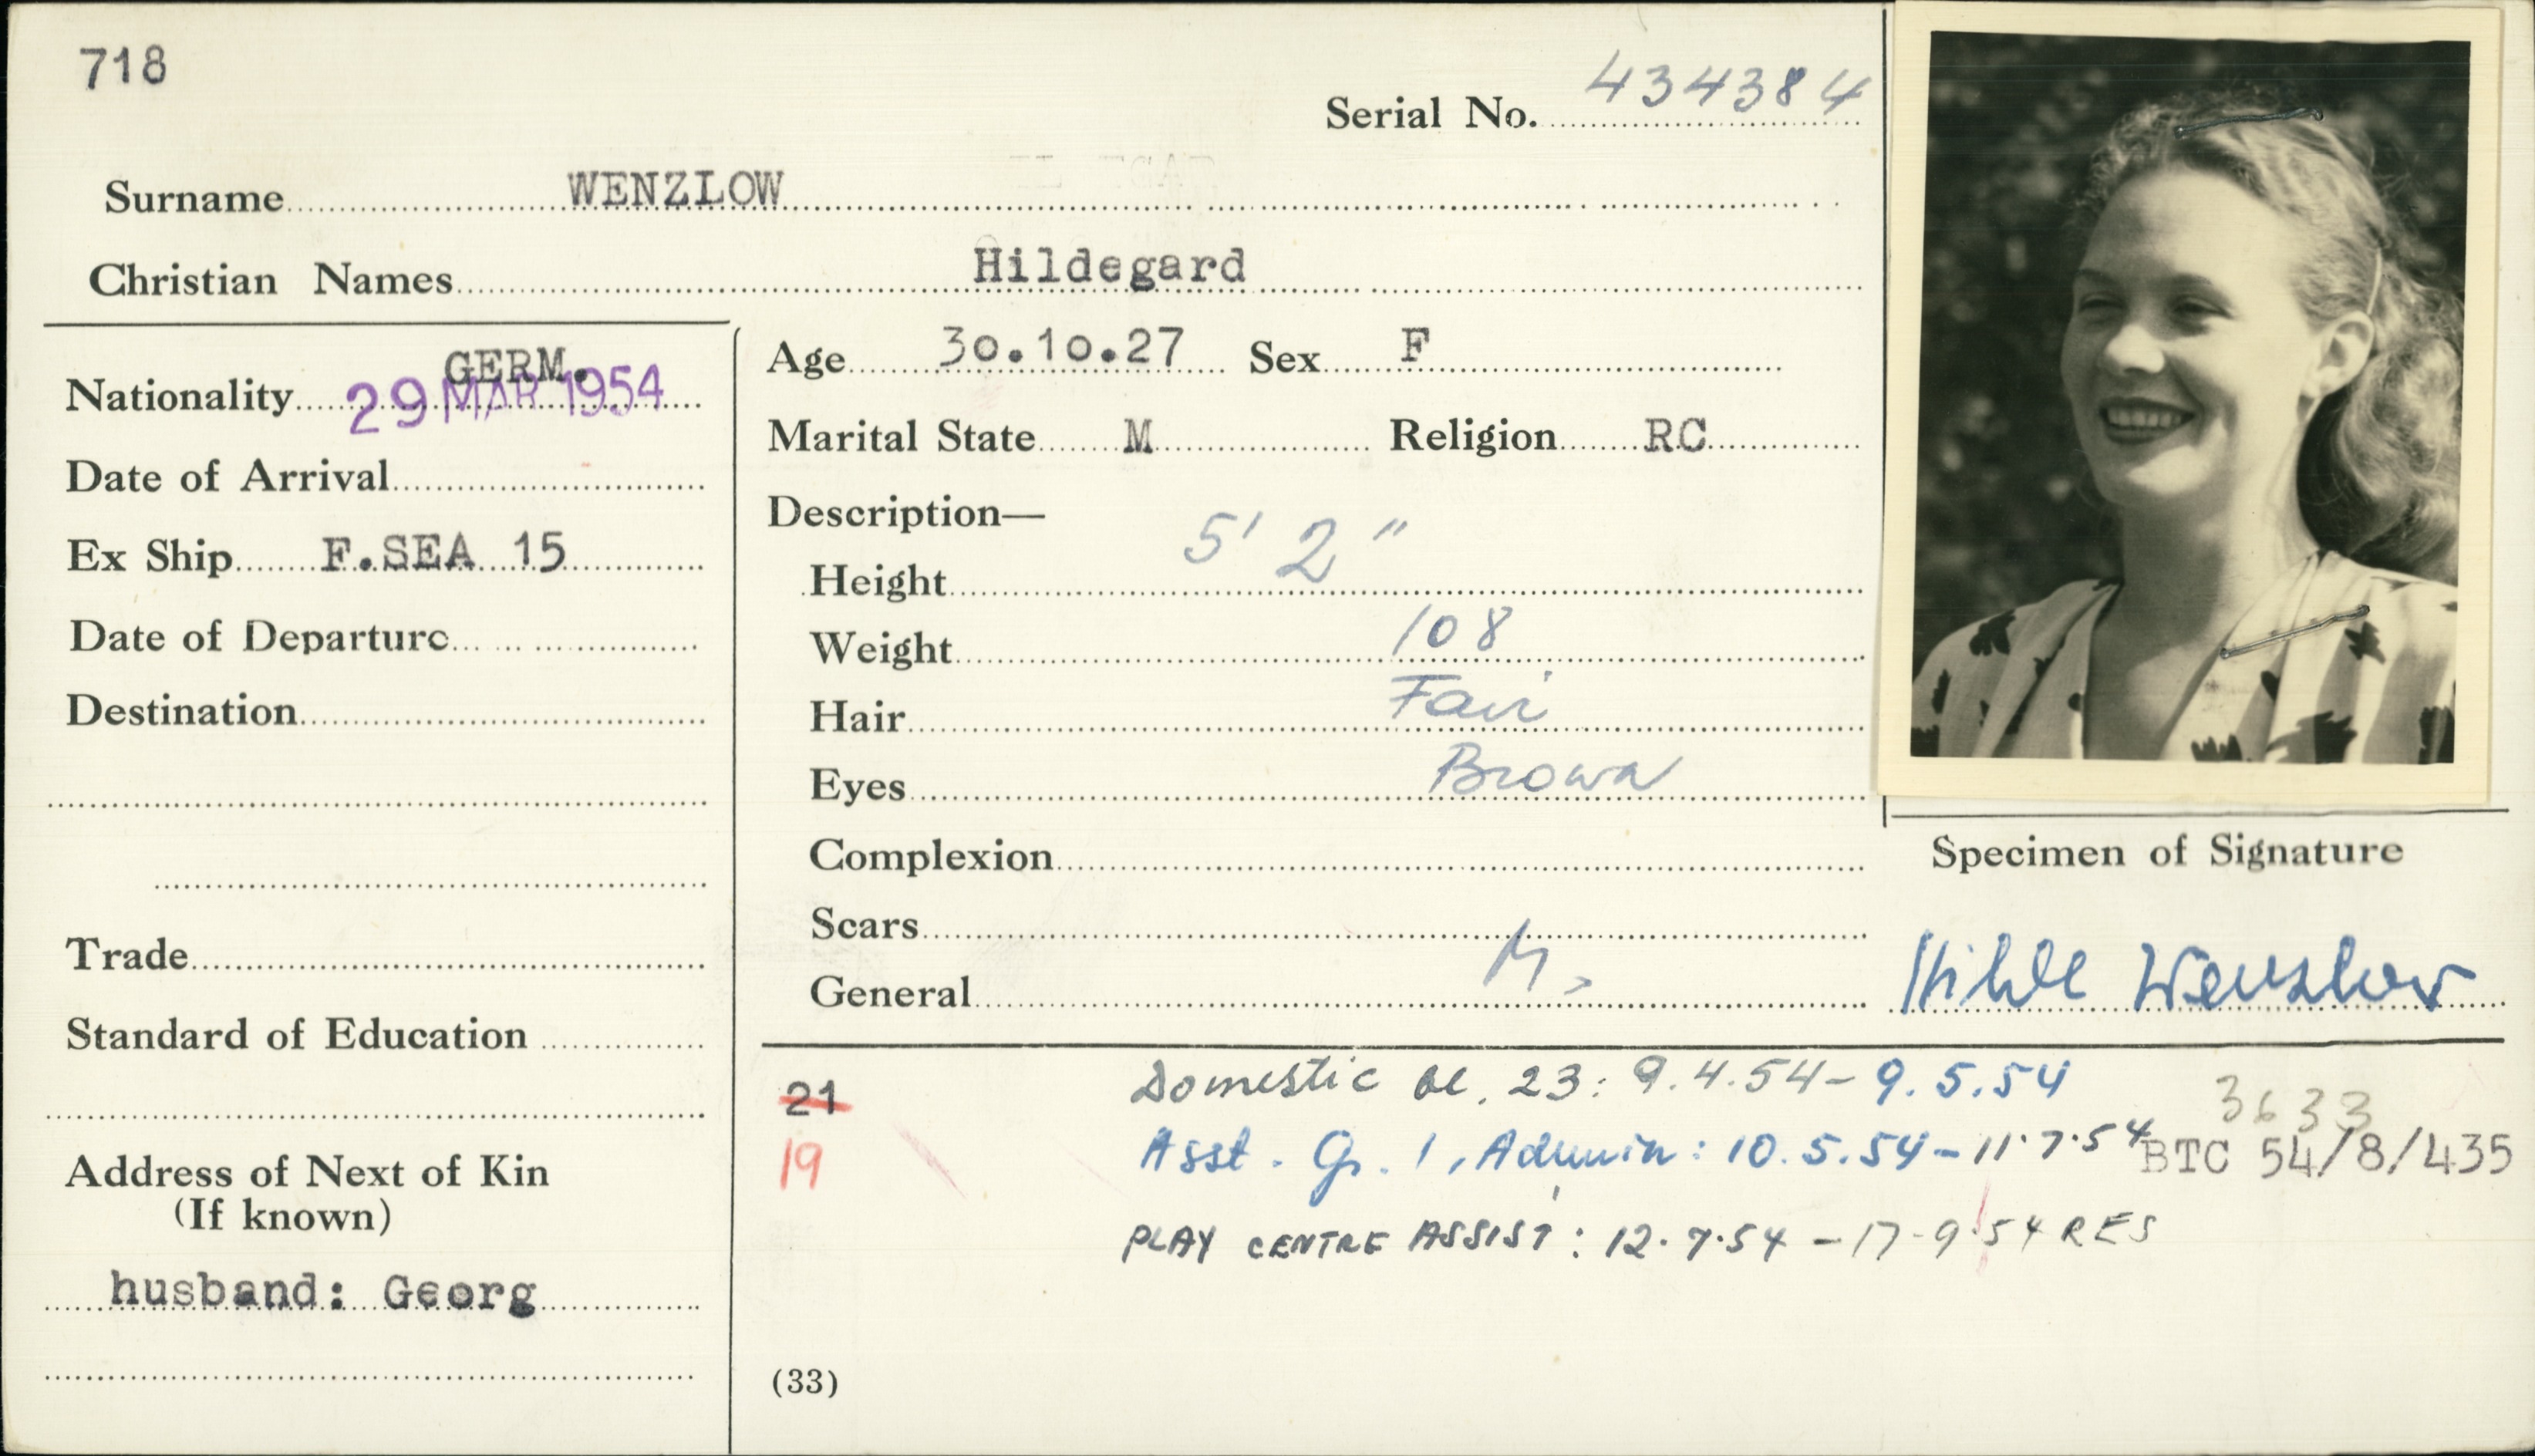 718
Serial No. 434384
Surname WENZLOW
Christian Names Hildegard
Nationality GERM.
29 MAR 1954
Date of Arrival
Ex Ship F.SEA 15
Date of Departure
Destination
Trade
Standard of Education
Address of Next of Kin
(If known)
husband: Georg
Age 30.10.27 Sex F
Marital State M Religion RC
Description—
Height 5' 2"
Weight 108
Hair Fair
Eyes Brown
Complexion
Scars
General
Specimen of Signature
Hilde Wenzlow
21
19
Domestic 23: 9.4.54 - 9.5.54
3633
Asst. Gr. 1, Admin: 10.5.54 - 11.7.54
BTC 54/8/435
PLAY CENTRE ASSIST: 12.7.54 - 17.9.54 RES
(33)